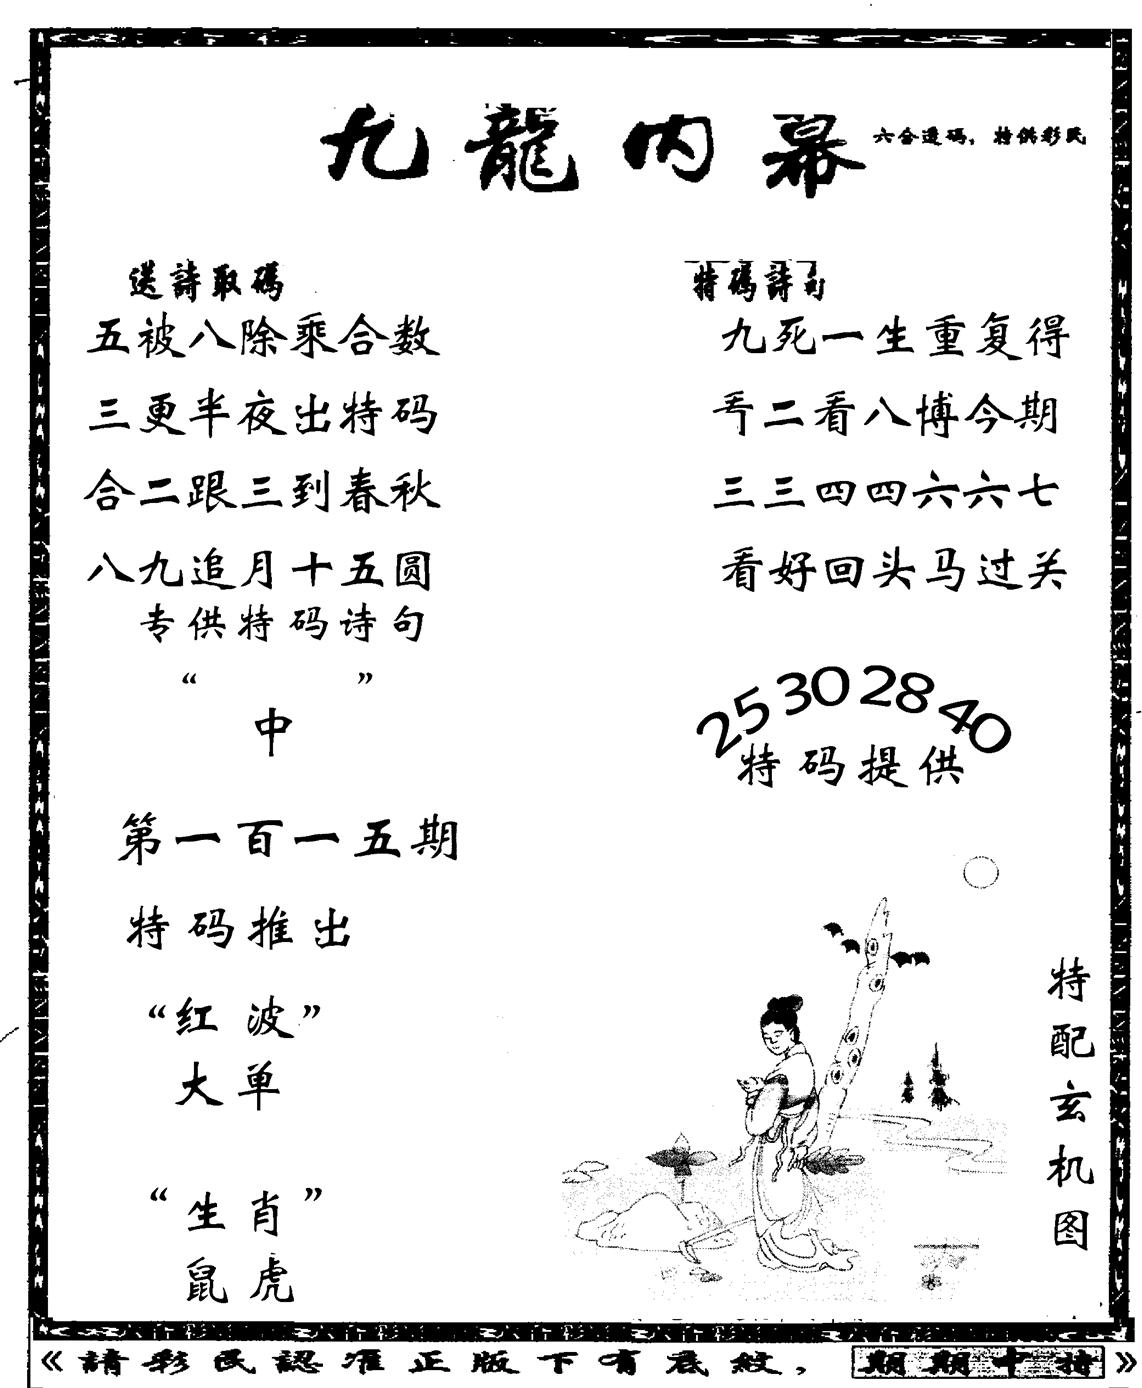 九龍内幕
六合透碼，特供彩民
送詩取碼
五被八除乘合数
三更半夜出特码
合二跟三到春秋
八九追月十五圆
专供特码诗句
“ ”
中
第一百一五期
特码推出
“红波”
大单
“生肖”
鼠虎
特碼詩句
九死一生重复得
二看八博今期
三三四四六六七
看好回头马过关
25 30 28 40
特码提供
特配玄机图
《請彩民認准正版下有底紋，期期中特》